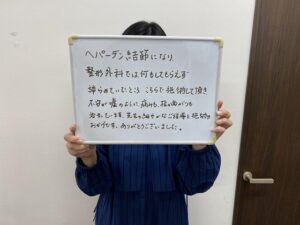 ヘバーデン結節になり
整形外科では何もしてもらえず
諦らめていたところ こちらで施術して頂き
不安が嘘のように痛みも、指の曲がりも
治ましています。先生の細やかなご指導と施術の
おかげです。ありがとうございました。